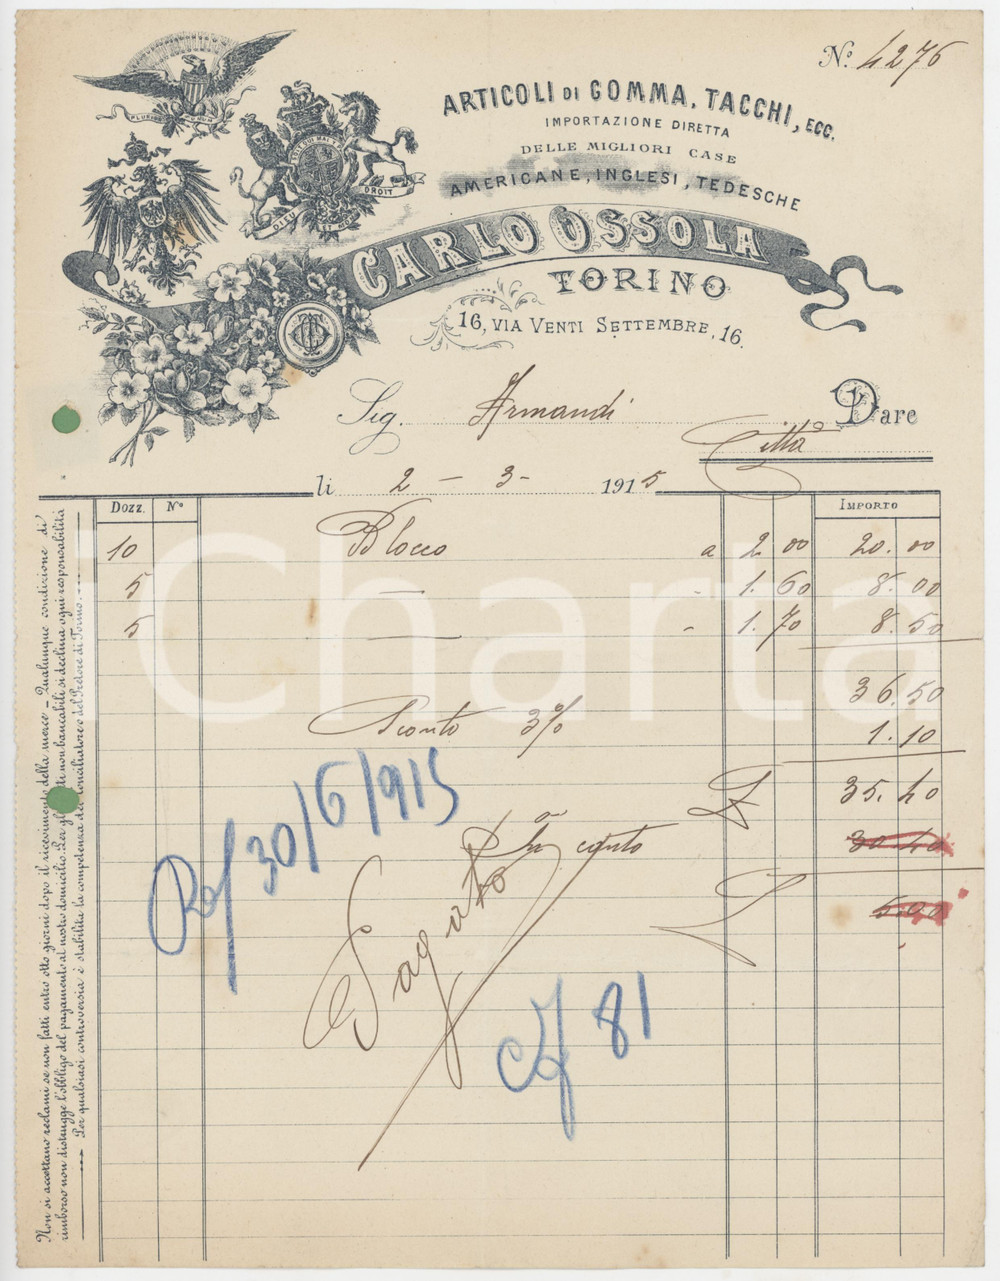 Nº. 4276
ARTICOLI DI GOMMA, TACCHI, ECC.
IMPORTAZIONE DIRETTA
DELLE MIGLIORI CASE
AMERICANE, INGLESI, TEDESCHE
CARLO OSSOLA
TORINO
16, VIA VENTI SETTEMBRE, 16.
DIEU ET MON DROIT
Sig. Armandi Dare
Città
li 2 - 3 - 1915
Dozz. Nº IMPORTO
10 Blocco a 2 00 20. 00
5 — - 1. 60 8. 00
5 — - 1. 70 8. 50
36. 50
Sconto 3% 1. 10
35. 40
in conto 30 40
5.00
30/6/915
Pagato
81
Non si accettano reclami se non fatti entro otto giorni dopo il ricevimento della merce — Qualunque condizione di
rimborso non distrugge l'obbligo del pagamento al nostro domicilio. Per gli non bancabili si declina ogni responsabilità
Per qualsiasi controversia è stabilita la competenza del Conciliatore e del Pretore di Torino.
iCharta